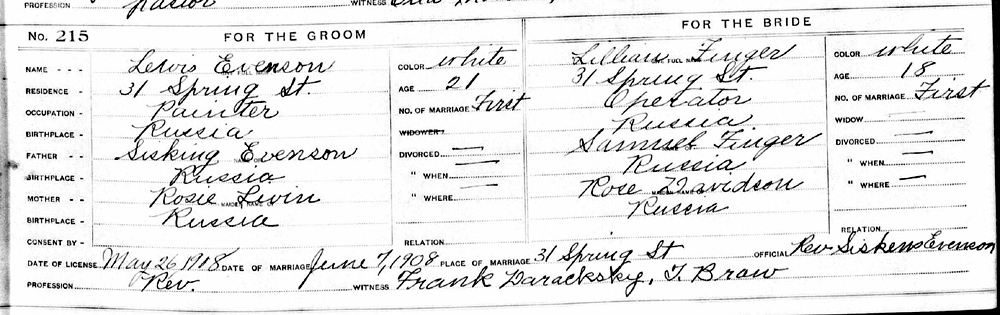 PROFESSION Pastor WITNESS
No. 215 FOR THE GROOM FOR THE BRIDE
NAME - - - Lewis Evenson COLOR White Lillian Finger COLOR White
RESIDENCE - 31 Spring St. AGE 21 31 Spring St AGE 18
OCCUPATION - Painter NO. OF MARRIAGE First Operator NO. OF MARRIAGE First
BIRTHPLACE - Russia WIDOWER Russia WIDOW
FATHER - - Sisking Evenson DIVORCED — Samuel Finger DIVORCED —
BIRTHPLACE - Russia " WHEN — Russia " WHEN —
MOTHER - - Rosie Levin " WHERE — Rose Davidson " WHERE —
BIRTHPLACE - Russia Russia
CONSENT BY - RELATION RELATION
DATE OF LICENSE May 26, 1908 DATE OF MARRIAGE June 7, 1908 PLACE OF MARRIAGE 31 Spring St OFFICIAL Rev Siskens Evenson
PROFESSION Rev. WITNESS Frank Daracksky, T. Braw